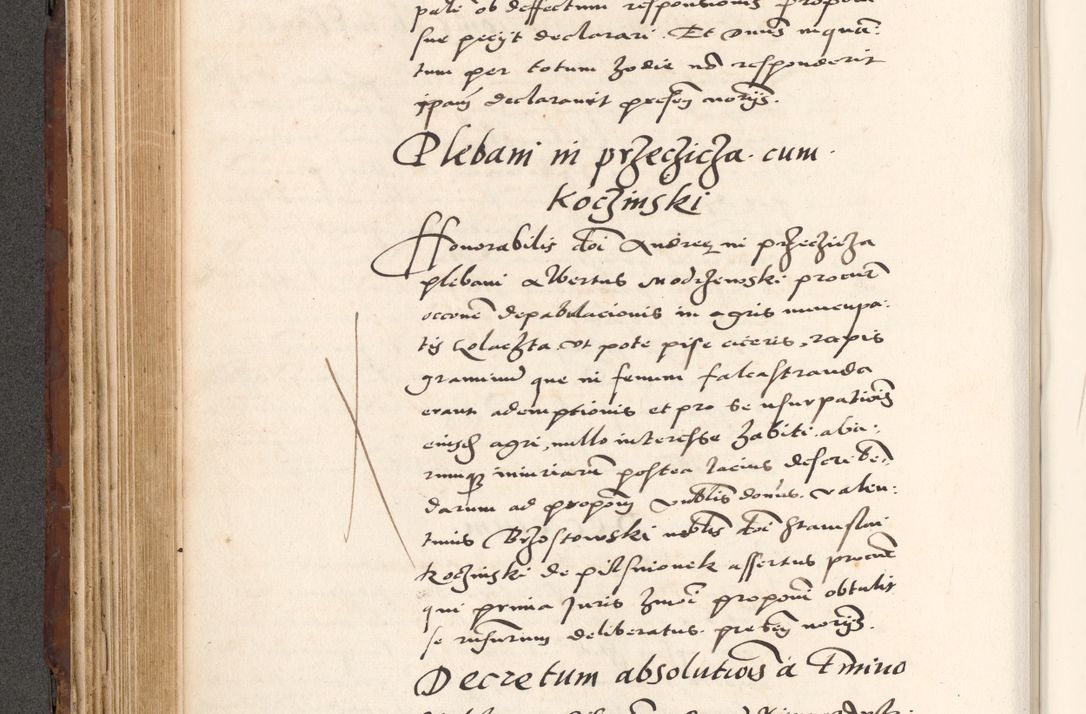 pate ob deffectum responsionis propon
sue peÿt declarari. Et Dnus inquen:
tum per totum hodie nō responderit
ipam̄ declaravit presen̄ norijs.
Plebani in przeczicza. cum
koczinski
Honorabilis dōi Andree in przeczicza
plebani albertus Modrzewski procur
occōnē depabulacionis in agris nuncupa:
tis Kolaczta. vt pote pise ciceris, rapis
graminū que in fenum falcastranda
erant ademptionis et pro se usurpationis
eiusdē agri, nullo interesse habiti. alia:
rumque iniuriarū postea lacius describen:
darum ad propon̄ dnus. Valen:
tinus Brzostowski nobilis dōi Stanislai
koczinski de pilsnionek assertus procur̄
qui prima Juris propōnī obtulit
se deliberatus. presen̄ norijs.
Decretum absolutiōis a Tmino